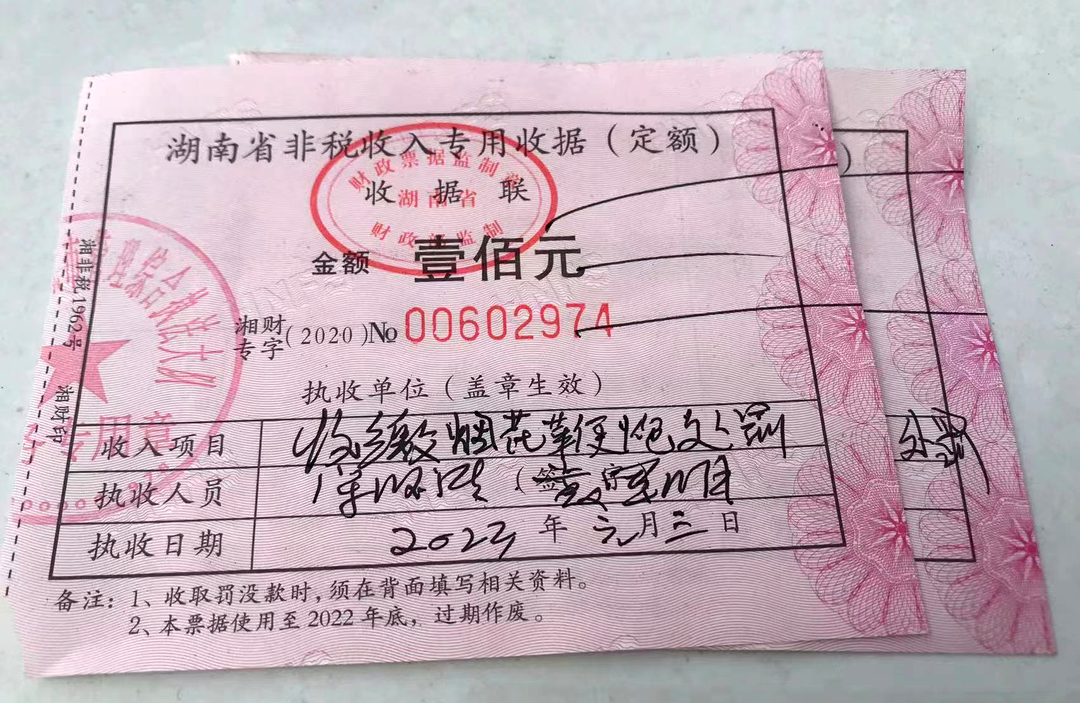 湖南省非税收入专用收据（定额）
财政票据监制章
收据联
湖南省
财政部监制
金额 壹佰元
湘财专字（2020）№ 00602974
执收单位（盖章生效）
综合执法大队
专用章
湘非税1962号 湘财印
收入项目 烟花 处罚
执收人员 （签字） 明
执收日期 2023年元月三日
备注：1、收取罚没款时，须在背面填写相关资料。
2、本票据使用至2022年底，过期作废。
）
处罚